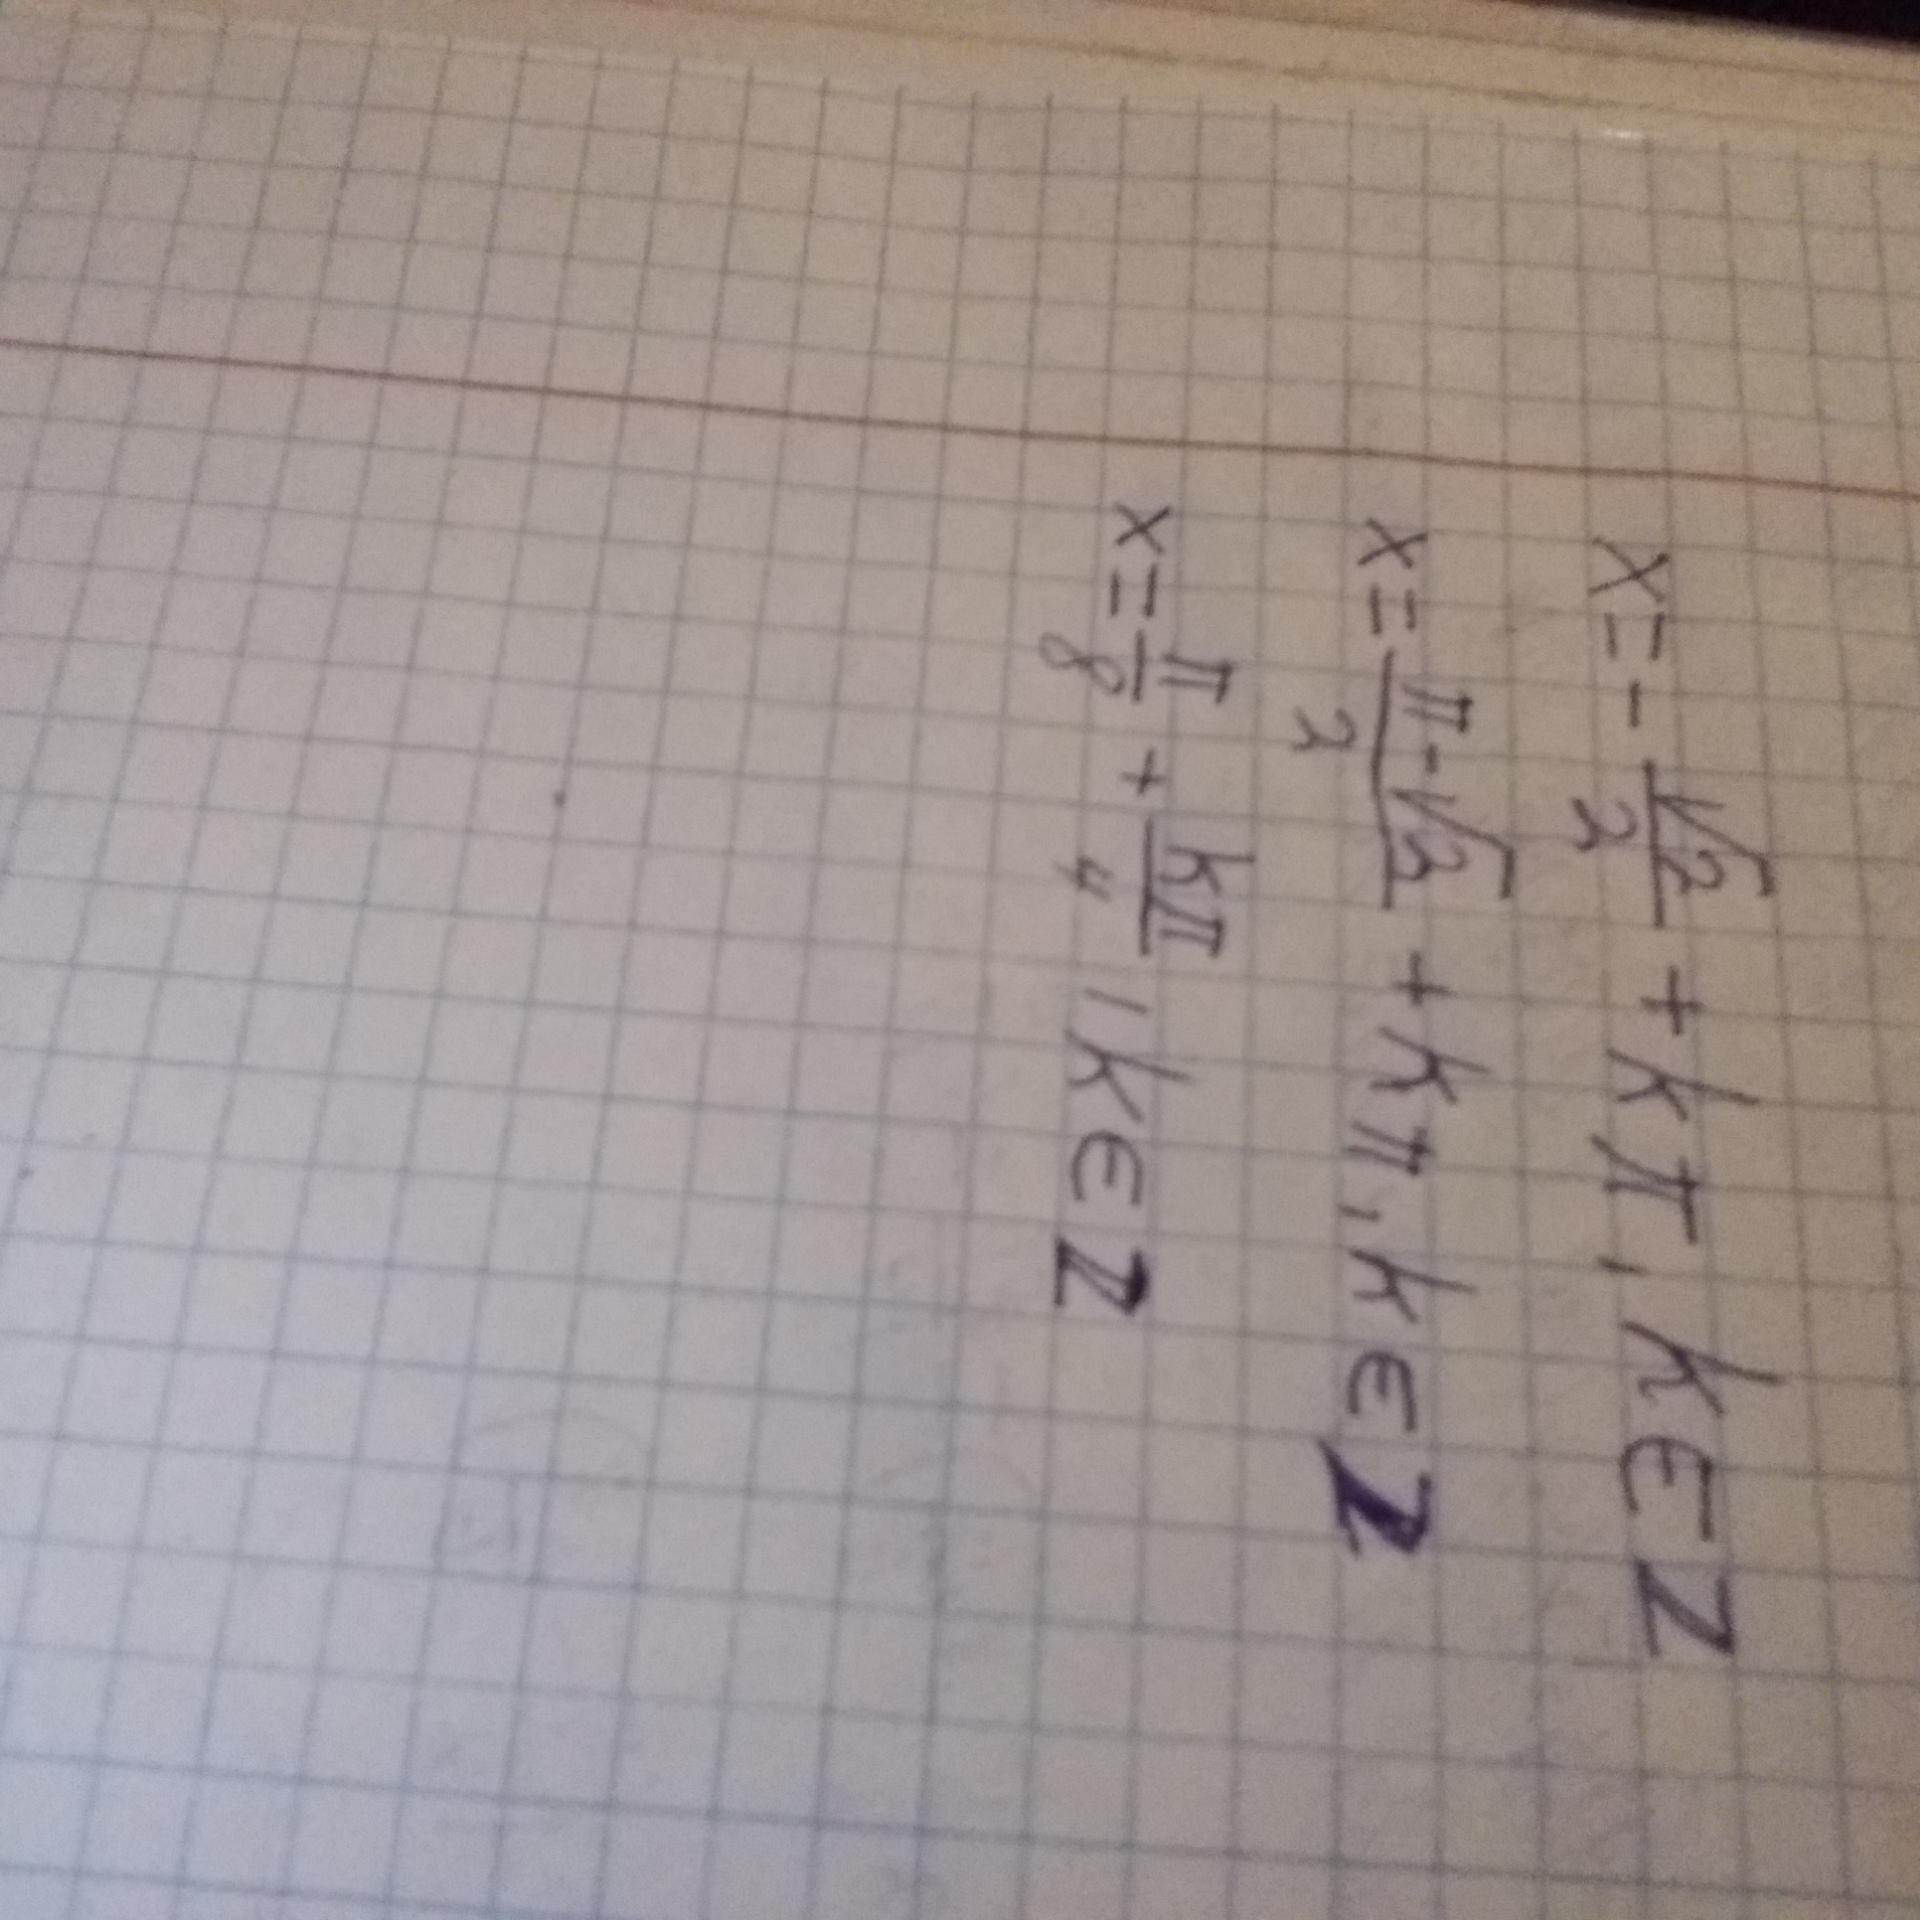 x = - √2/2 + kπ, k ∈ Z
x = (π - √2)/2 + kπ, k ∈ Z
x = π/8 + kπ/4, k ∈ Z